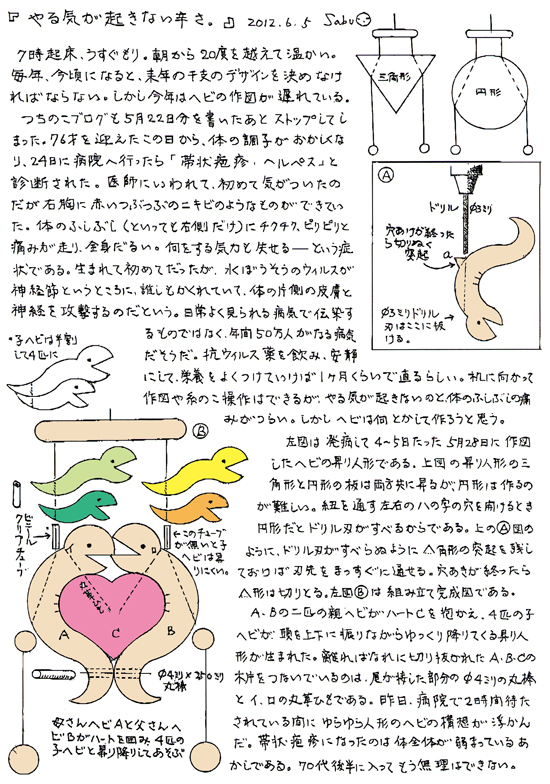 『やる気が起きない辛さ。』 2012.6.5 Sabu
7時起床、うすぐもり。朝から20度を越えて温かい。
毎年、今頃になると、来年の干支のデザインを決めなけ
ればならない。しかし今年はヘビの作図が遅れている。
つちのこブログも5月22日分を書いたあとストップしてし
まった。76才を迎えたこの日から、体の調子がおかしくな
り、24日に病院へ行ったら「帯状疱疹・ヘルペス」と
診断された。医師にいわれて、初めて気がついたの
だが右胸に赤いつぶつぶのニキビのようなものができてい
た。体のふしぶし(といっても右側だけ)にチクチク、ピリピリと
痛みが走り、全身だるい。何をする気力も失せる——という症
状である。生まれて初めてだったが、水ぼうそうのウィルスが
神経節というところに、誰しもかくれていて、体の片側の皮膚と
神経を攻撃するのだという。日常よく見られる病気で伝染す
るものではなく、年間50万人がなる病気
だそうだ。抗ウイルス薬を飲み、安静
にして、栄養をよくつけていけば1ヶ月くらいで直るらしい。机に向かって
作図や糸のこ操作はできるが、やる気が起きないのと、体のふしぶしの痛
みがつらい。しかしヘビは何とかして作ろうと思う。
左図は発病して4〜5日たった5月28日に作図
したヘビの昇り人形である。上図の昇り人形の三
角形と円形の板は両方共に昇るが、円形は作るの
が難しい。紐を通す左右のハの字の穴を開けるとき
円形だとドリル刃がすべるからである。上のⒶ図の
ように、ドリル刃がすべらぬように△角形の突起を残し
ておけば刃先をまっすぐに通せる。穴あきが終ったら
△形は切りとる。左図Ⓑは組み立て完成図である。
A・Bの二匹の親ヘビがハートCを抱かえ、4匹の子
ヘビが頭を上下に振りながらゆっくり降りてくる昇り人
形が生まれた。離ればなれに切り抜かれたA・B・Cの
木片をつないでいるのは、尾が接した部分のφ4ミリの丸棒
とイ、ロの丸革ひもである。昨日、病院で2時間待た
されている間にゆらゆら人形のヘビの構想が浮かん
だ。帯状疱疹になったのは体全体が弱まっているあ
かしである。70代後半に入ってもう無理はできない。
三角形
円形
Ⓐ
ドリル
φ3ミリ
穴あけが終った
ら切りぬく
突起
a
φ3ミリドリル
刃はここに抜
ける。
*子ヘビは半割
して4匹に
Ⓑ
ビニール
クリアチューブ
←このチューブ
が無いと子
ヘビは昇
りにくい。
A
C
B
φ4ミリ×20ミリ
丸棒
母さんヘビAと父さんヘ
ビBがハートを囲み、4匹の
子ヘビと昇り降りしてあそぶ